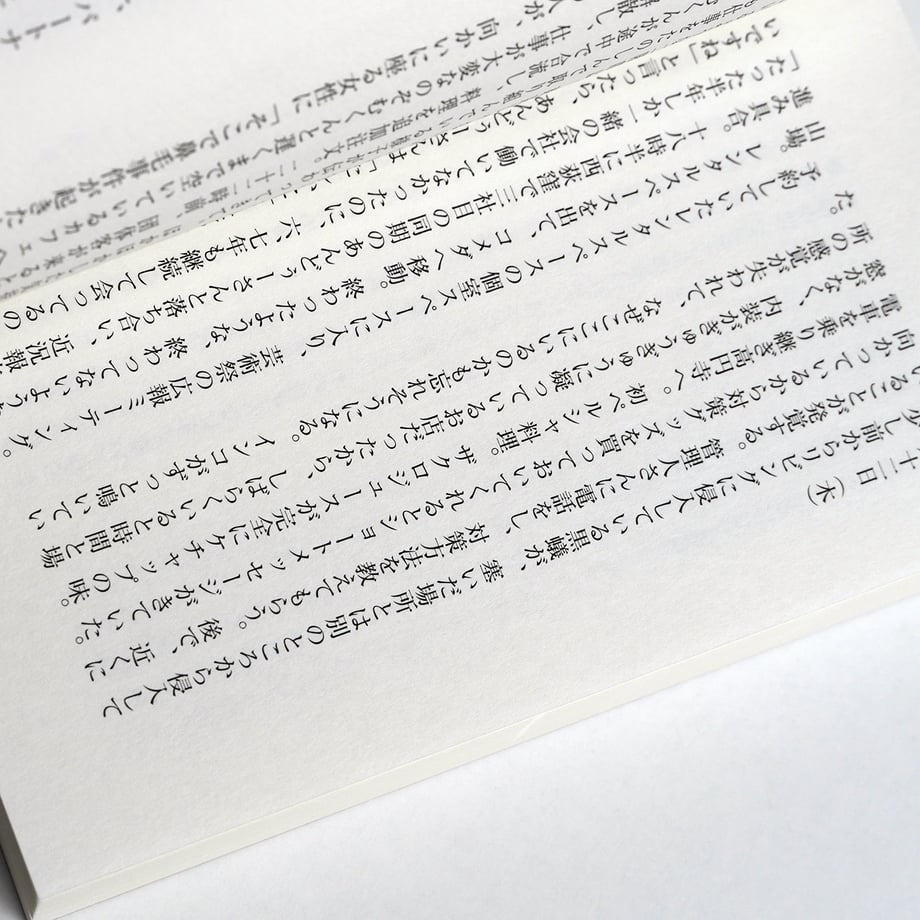 十二日（木）
少し前からリビングに侵入している黒蟻が、塞いだ場所とは別のところから侵入して
いることが発覚する。管理人さんに電話をし、対策方法を教えてもらう。後で、近くに
向かっているから対策グッズを買っておいてくれるとショートメッセージがきていた。
電車を乗り継ぎ高円寺へ。初ペルシャ料理。ザクロジュースが完全にケチャップの味。
窓がなく、内装がぎゅうぎゅうに凝っているお店だったから、しばらくいると時間と場
所の感覚が失われて、なぜここにいるのかも忘れそうになる。インコがずっと鳴いてい
た。
予約していたレンタルスペースの個室スペースに入り、芸術祭の広報ミーティング。
山場。レンタルスペースを出て、コメダへ移動。終わったような、終わってないような
進み具合。十八時半に西荻窪で三社目の同期のあんどぅーさんと落ち合い、近況報
「たった半年しか一緒の会社で働いてなかったのに、六、七年も継続して会ってるの
いですね」と言ったら、あんどぅーさんは「
が途中で合流し、料理を追加注文。二十二時前、団体客が来ると
散し、仕事が大変なのぞむくんと遅くまで空いているカフェへ
人が、向かいに座る女性に「そこで鼻毛事件が起きた
、パートナ